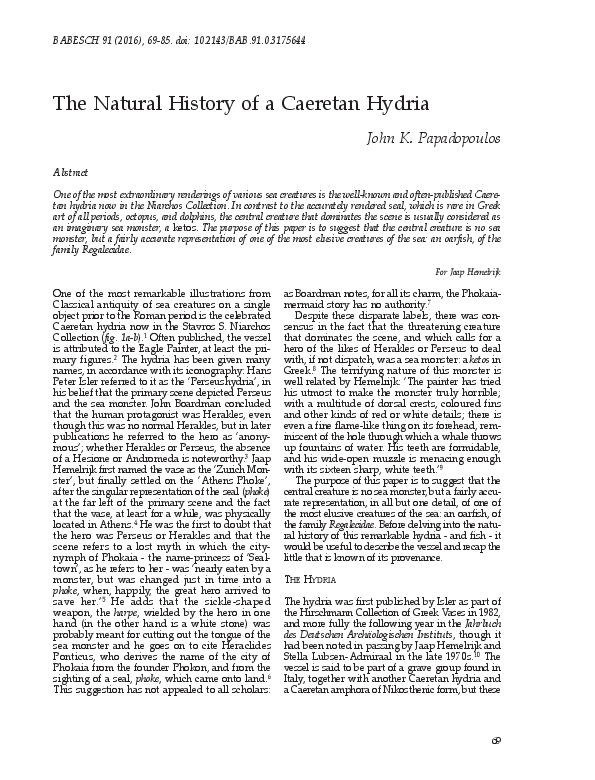 BABESCH 91 (2016), 69-85. doi: 10.2143/BAB.91.03175644
The Natural History of a Caeretan Hydria
John K. Papadopoulos
Abstract
One of the most extraordinary renderings of various sea creatures is the well-known and often-published Caere-
tan hydria now in the Niarchos Collection. In contrast to the accurately rendered seal, which is rare in Greek
art of all periods, octopus, and dolphins, the central creature that dominates the scene is usually considered as
an imaginary sea monster, a ketos. The purpose of this paper is to suggest that the central creature is no sea
monster, but a fairly accurate representation of one of the most elusive creatures of the sea: an oarfish, of the
family Regalecidae.
For Jaap Hemelrijk
One of the most remarkable illustrations from
Classical antiquity of sea creatures on a single
object prior to the Roman period is the celebrated
Caeretan hydria now in the Stavros S. Niarchos
Collection (fig. 1a-b).1 Often published, the vessel
is attributed to the Eagle Painter, at least the pri-
mary figures.2 The hydria has been given many
names, in accordance with its iconography: Hans
Peter Isler referred to it as the 'Perseushydria', in
his belief that the primary scene depicted Perseus
and the sea monster. John Boardman concluded
that the human protagonist was Herakles, even
though this was no normal Herakles, but in later
publications he referred to the hero as 'anony-
mous'; whether Herakles or Perseus, the absence
of a Hesione or Andromeda is noteworthy.3 Jaap
Hemelrijk first named the vase as the 'Zurich Mon-
ster', but finally settled on the 'Athens Phoke',
after the singular representation of the seal (phoke)
at the far left of the primary scene and the fact
that the vase, at least for a while, was physically
located in Athens.4 He was the first to doubt that
the hero was Perseus or Herakles and that the
scene refers to a lost myth in which the city-
nymph of Phokaia - the name-princess of 'Seal-
town', as he refers to her - was 'nearly eaten by a
monster, but was changed just in time into a
phoke, when, happily, the great hero arrived to
save her.'5 He adds that the sickle-shaped
weapon, the harpe, wielded by the hero in one
hand (in the other hand is a white stone) was
probably meant for cutting out the tongue of the
sea monster and he goes on to cite Heraclides
Ponticus, who derives the name of the city of
Phokaia from the founder Phokon, and from the
sighting of a seal, phoke, which came onto land.6
This suggestion has not appealed to all scholars:
as Boardman notes, for all its charm, the Phokaia-
mermaid story has no authority.7
Despite these disparate labels, there was con-
sensus in the fact that the threatening creature
that dominates the scene, and which calls for a
hero of the likes of Herakles or Perseus to deal
with, if not dispatch, was a sea monster: a ketos in
Greek.8 The terrifying nature of this monster is
well related by Hemelrijk: 'The painter has tried
his utmost to make the monster truly horrible;
with a multitude of dorsal crests, coloured fins
and other kinds of red or white details; there is
even a fine flame-like thing on its forehead, rem-
iniscent of the hole through which a whale throws
up fountains of water. His teeth are formidable,
and his wide-open muzzle is menacing enough
with its sixteen sharp, white teeth.'9
The purpose of this paper is to suggest that the
central creature is no sea monster, but a fairly accu-
rate representation, in all but one detail, of one of
the most elusive creatures of the sea: an oarfish, of
the family Regalecidae. Before delving into the natu-
ral history of this remarkable hydria - and fish - it
would be useful to describe the vessel and recap the
little that is known of its provenance.
THE HYDRIA
The hydria was first published by Isler as part of
the Hirschmann Collection of Greek Vases in 1982,
and more fully the following year in the Jahrbuch
des Deutschen Archäologischen Instituts, though it
had been noted in passing by Jaap Hemelrijk and
Stella Lubsen-Admiraal in the late 1970s.10 The
vessel is said to be part of a grave group found in
Italy, together with another Caeretan hydria and
a Caeretan amphora of Nikosthenic form, but these
69